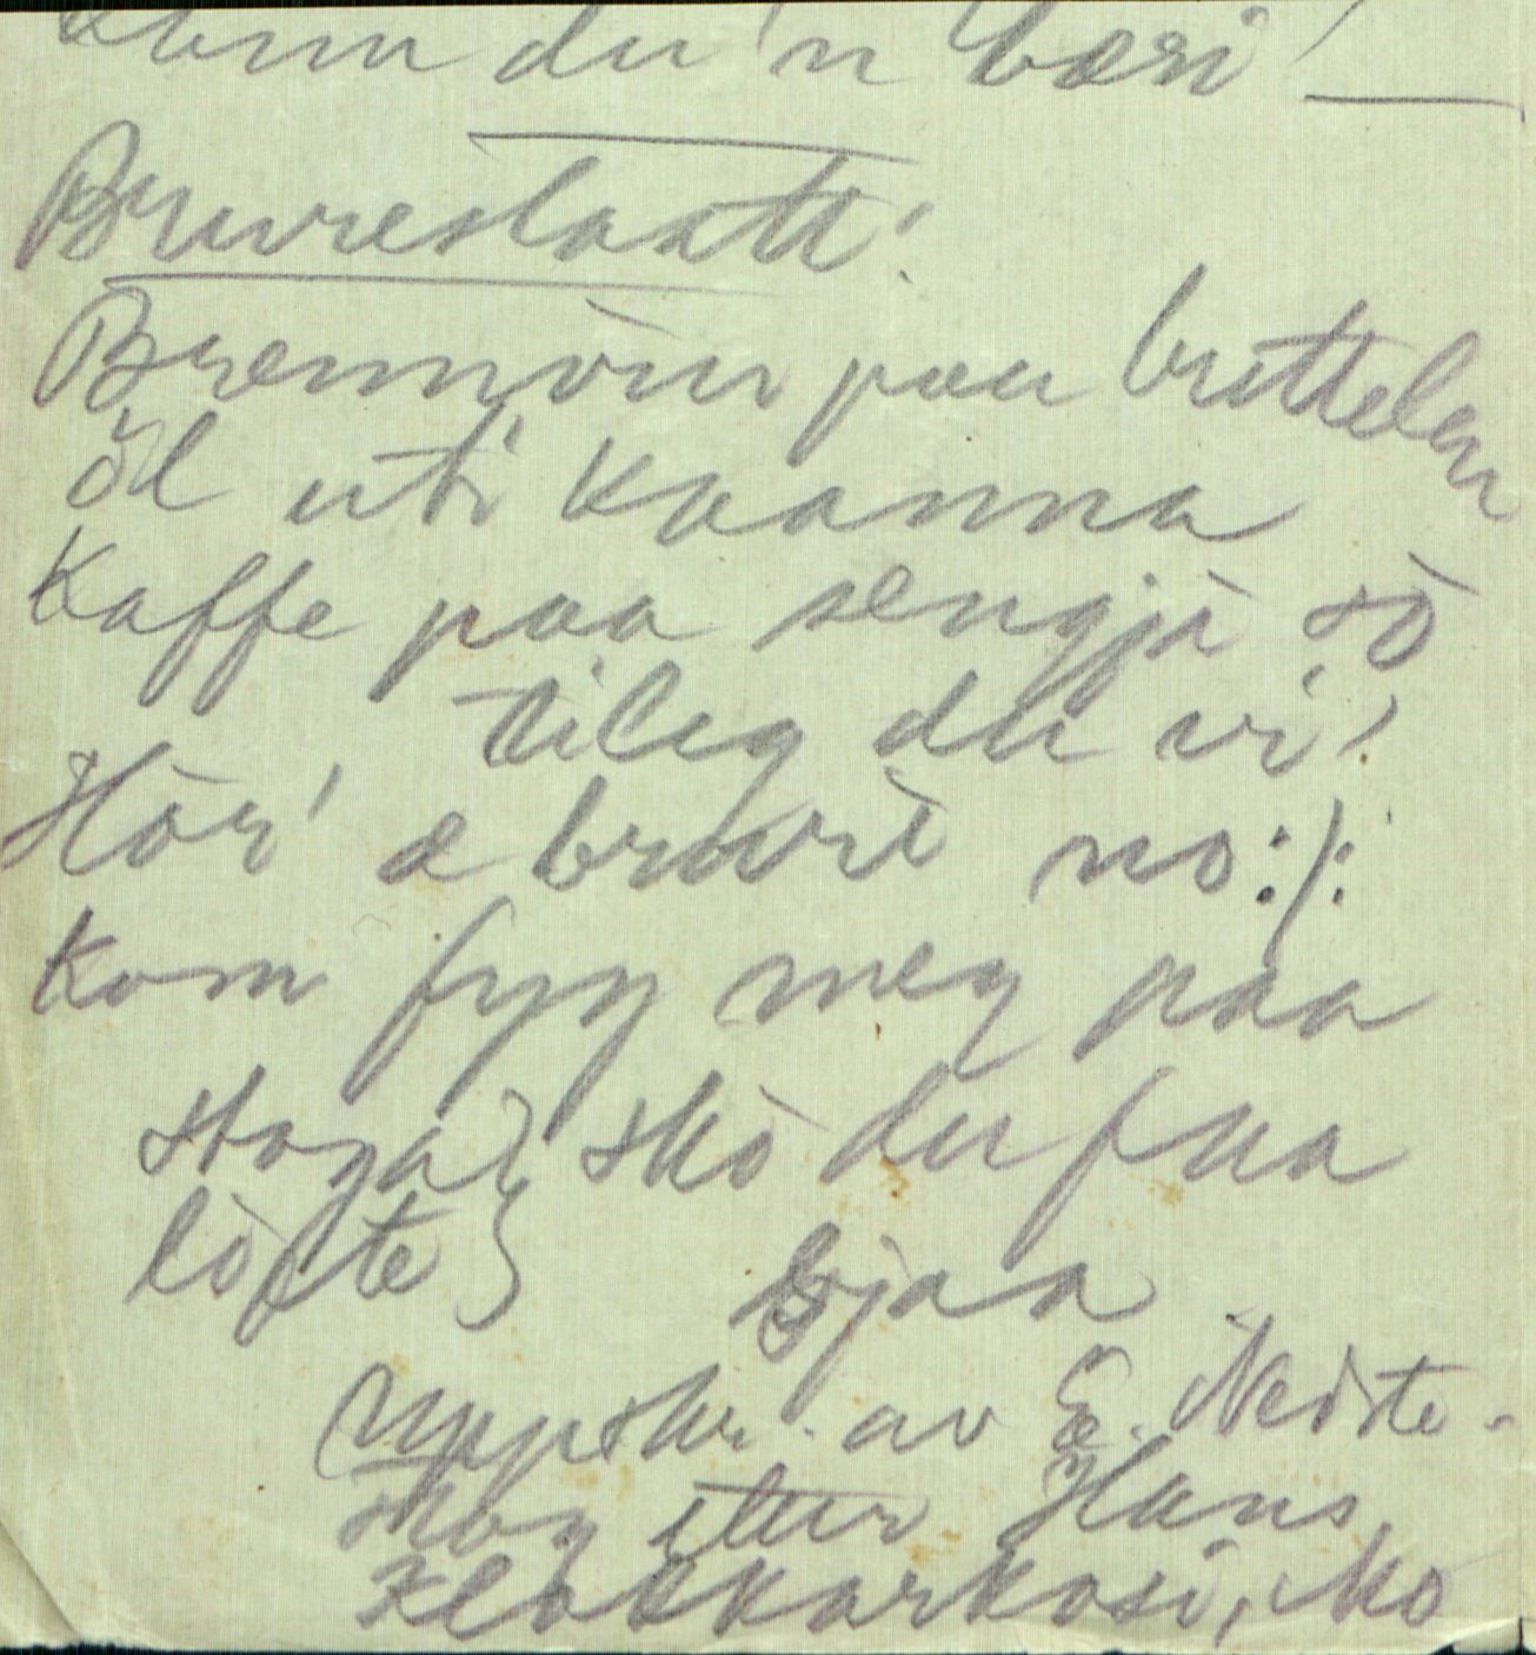 du 'n bori! —
Brureslaatt:
Brennvin paa buttelen
öl uti kaanna
Kaffe paa sengjè sò
tileg du vi!
Hör' æ brurè no :/:
Kom fyg meg paa
stoga } skò du faa
löfte }
sjaa
(Uppskr. av E. Nedste-
skog etter Hans
Klokkarkåsi, Mo